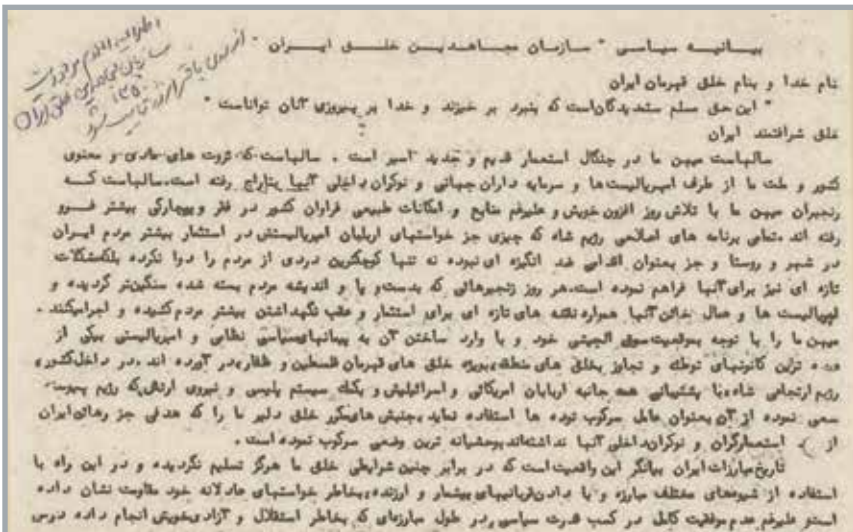 بیـــانیـــه سیـاسی " سـازمان مجـاهدیـن خلـــق ایـــران "
بنام خدا و بنام خلق قهرمان ایران
" این حق مسلم ستمدیدگان است که بنبرد بر خیزند و خدا بر پیروزی آنان تواناست "
خلق شرافتمند ایران
سالهاست میهن ما در چنگال استعمار قدیم و جدید اسیر است . سالهاست که ثروت های مادی و معنوی
کشور و ملت ما از طرف امپریالیست ها و سرمایه داران جهانی و نوکران داخلی آنها بتاراج رفته است.سالهاست کـــه
رنجبران میهن ما با تلاش روز افزون خویش و علیرغم منابع و امکانات طبیعی فراوان کشور در فقر و بیچارگی بیشتر فـــرو
رفته اند .تمامی برنامه های اصلاحی رژیم شاه که چیزی جز خواستهای اربابان امپریالیستش در استثمار بیشتر مردم ایـران
در شهر و روستا و جز بعنوان اقدامی ضد انگیزه ای نبوده نه تنها کوچکترین دردی از مردم را دوا نکرده بلکه مشکلات
تازه ای نیز برای آنها فراهم نموده است.هر روز زنجیرهائی که بدست و پا و اندیشه مردم بسته شده سنگین تر گردیده و
امپریالیست ها و عمال خائن آنها همواره نقشه های تازه ای برای استثمار و عقب نگهداشتن بیشتر مردم کشیده و اجرا میکنند .
میهن ما را با توجه بموقعیت سوق الجیشی خود و با وارد ساختن آن به پیمانهای سیاسی نظامی و امپریالیستی یکی از
عمده ترین کانونهای توطئه و تجاوز بخلق های منطقه بویژه خلق های قهرمان فلسطین و ظفار در آورده اند .در داخل کشور
رژیم ارتجاعی شاه با پشتیبانی همه جانبه اربابان امریکائی و اسرائیلیش و بکمک سیستم پلیسی و نیروی ارتش که رژیم پیوسته
سعی نموده از آن بعنوان عامل سرکوب توده ها استفاده نماید جنبش های مکرر خلق دلیر ما را که هدفی جز رهائی ایران
از استعمارگران و نوکران داخلی آنها نداشته اند بوحشیانه ترین وضعی سرکوب نموده است .
تاریخ مبارزات ایران بیانگر این واقعیت است که در برابر چنین شرایطی خلق ما هرگز تسلیم نگردیده و در این راه با
استفاده از شیوه های مختلف مبارزه و با دادن قربانیهای بیشمار و ارزنده بخاطر خواستهای عادلانه خود مقاومت نشان داده
است علیرغم عدم موفقیت کامل در کسب قدرت سیاسی در طول مبارزه ای که بخاطر استقلال و آزادی خویش انجام داده درس